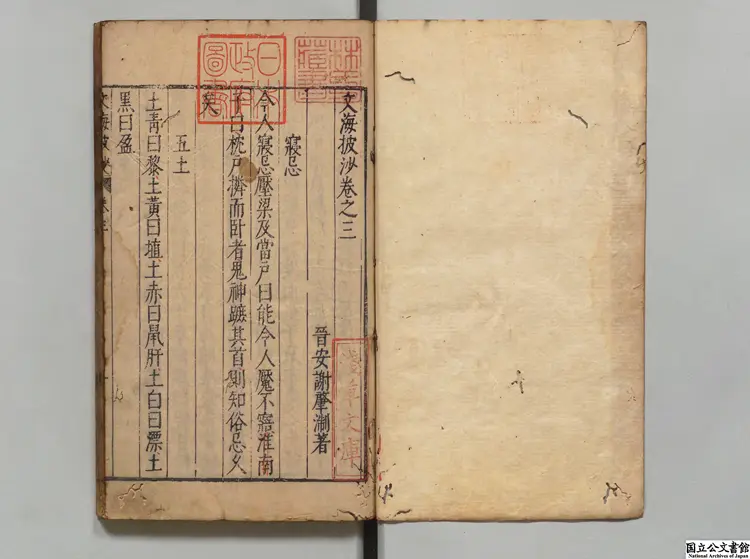 林氏藏書
日本政府圖書
文海披沙卷之三
晉安謝肇淛著
淺草文庫
寢忌
今人寢忌壓梁及當戶曰能令人魘不寤淮南
子曰枕戶橉而卧者鬼神蹠其首則知俗忌久
矣
五土
土青曰黎土黃曰埴土赤曰鼠肝土白曰漂土
黑曰盈
文海披沙 卷三
国立公文書館
National Archives of Japan